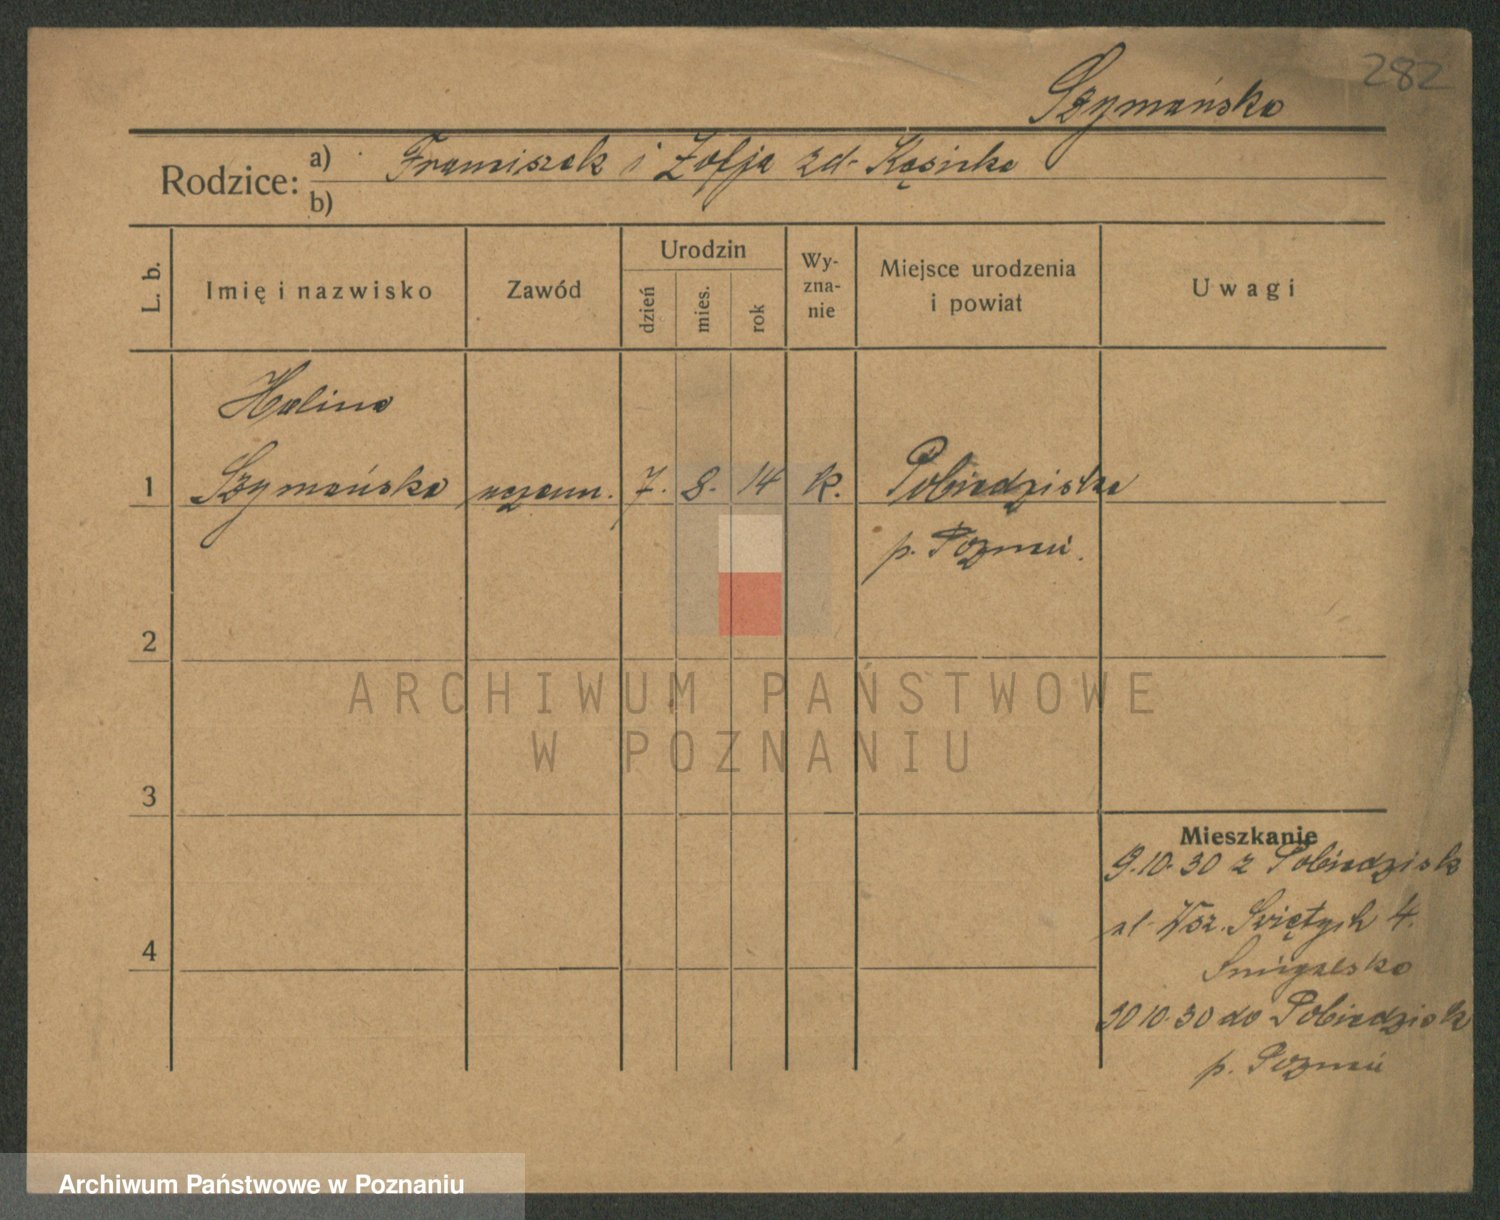 282
Szymańska
Rodzice:
a) Franciszek i Zofja zd. Kąsicka
b)
L. b.
Imię i nazwisko
Zawód
Urodzin
dzień
mies.
rok
Wy-
zna-
nie
Miejsce urodzenia
i powiat
Uwagi
Halina
1 Szymańska uczenn. 7. 8. 14 k. Pobiedziska
p. Poznań.
2
3
4
Mieszkanie
9.10.30 z Pobiedzisk
ul. Wsz. Świętych 4.
30 10.30 do Pobiedzisk
p. Poznań
ARCHIWUM PAŃSTWOWE
W POZNANIU
Archiwum Państwowe w Poznaniu